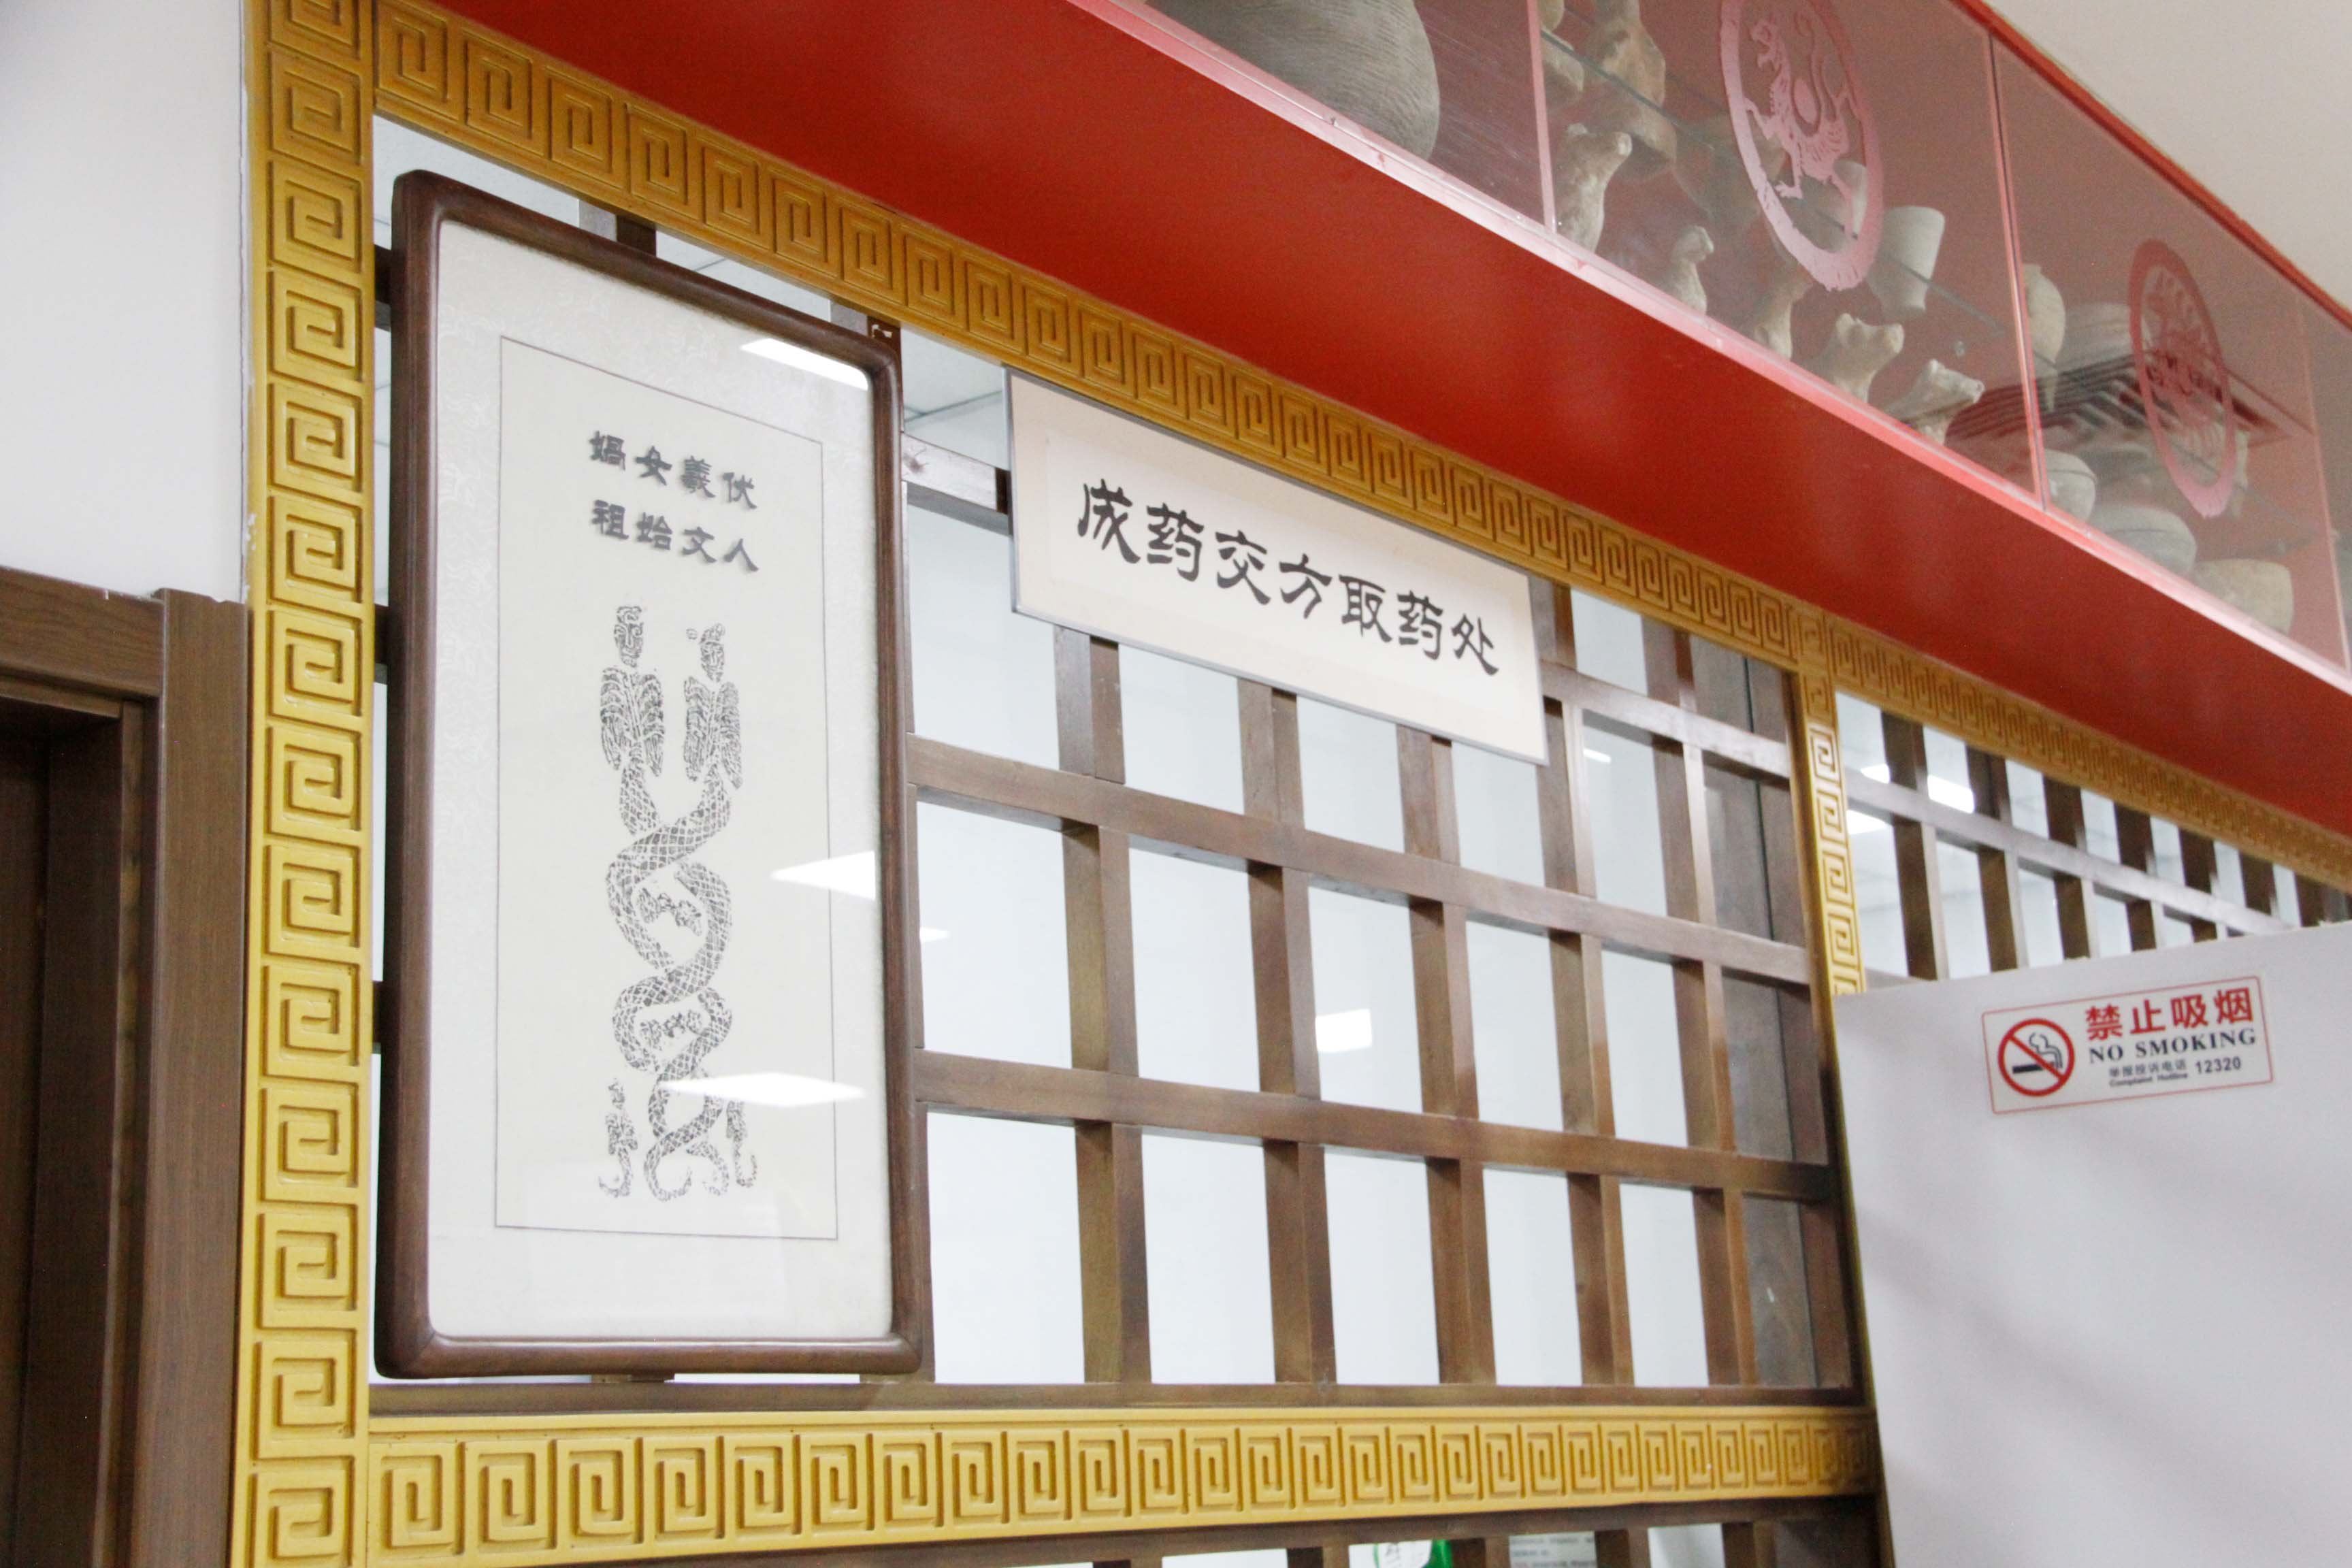 伏羲女娲
人文始祖
成药交方取药处
禁止吸烟
NO SMOKING
举报投诉电话 12320
Complaint Hotline